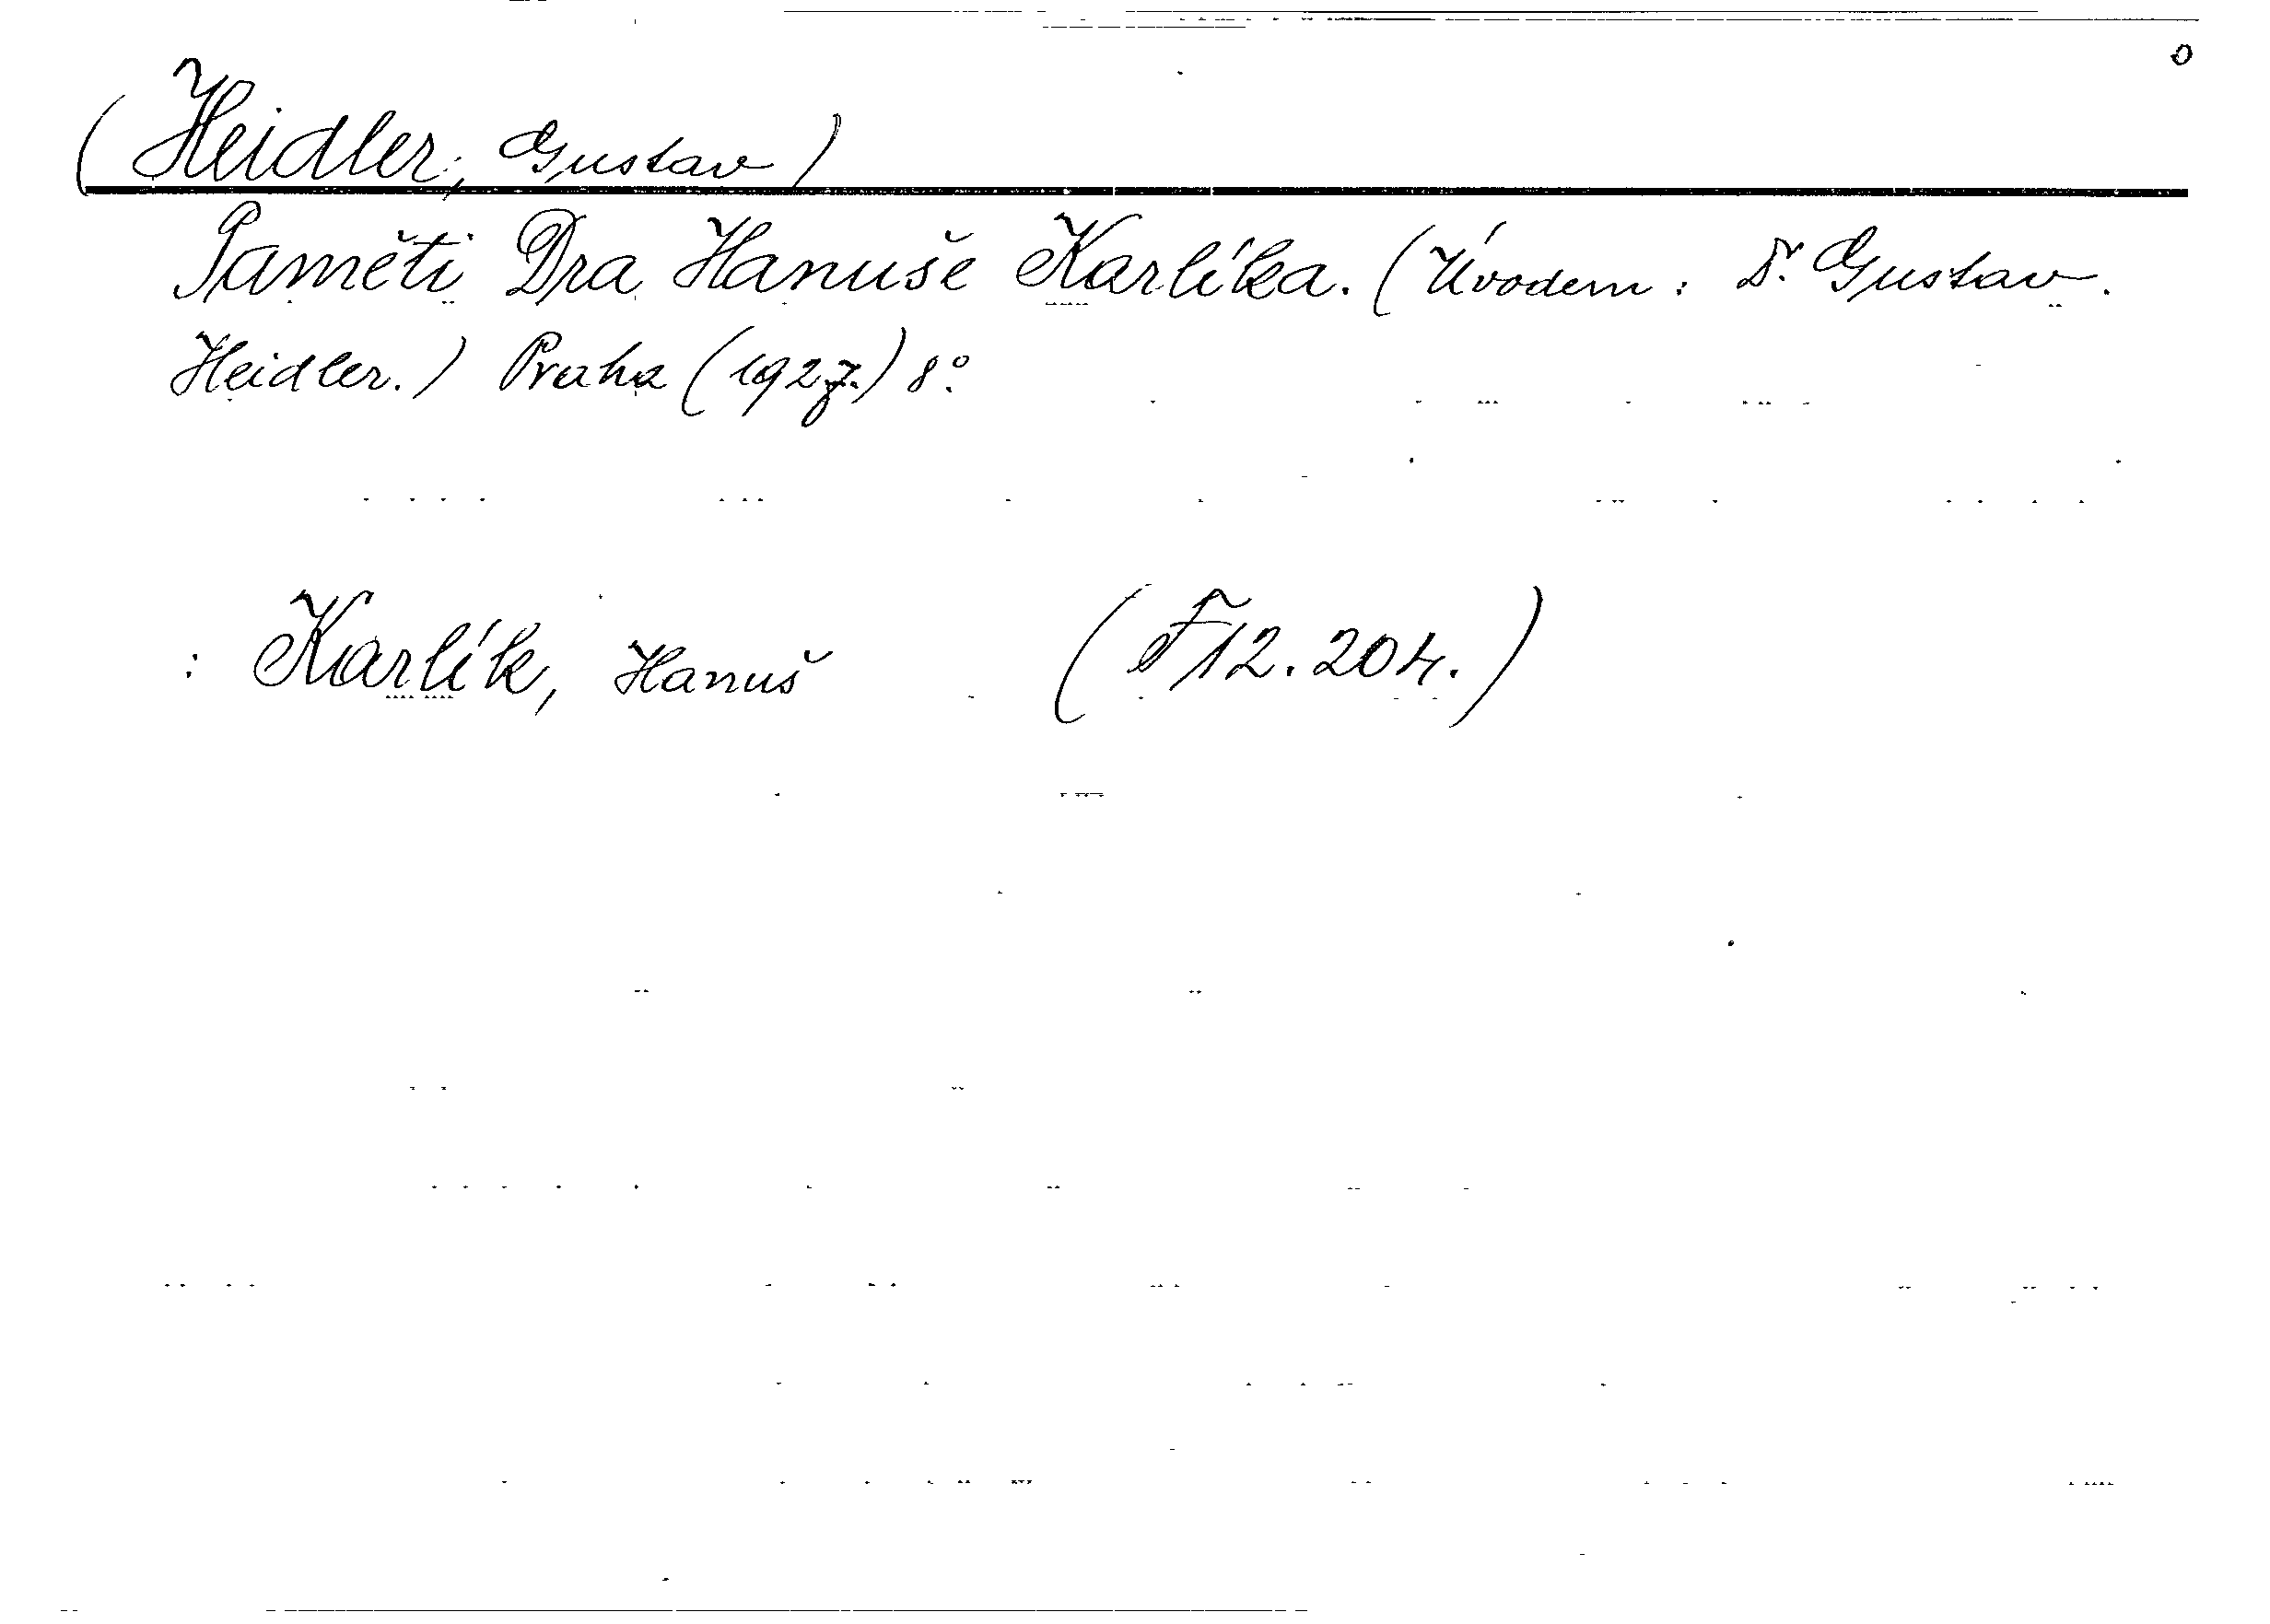 (Heidler, Gustav)
Paměti Dra Hanuše Karlíka. (Úvodem: Dr. Gustav
Heidler.) Praha (1927.) 8°.
: Karlík, Hanuš (F 12.204.)